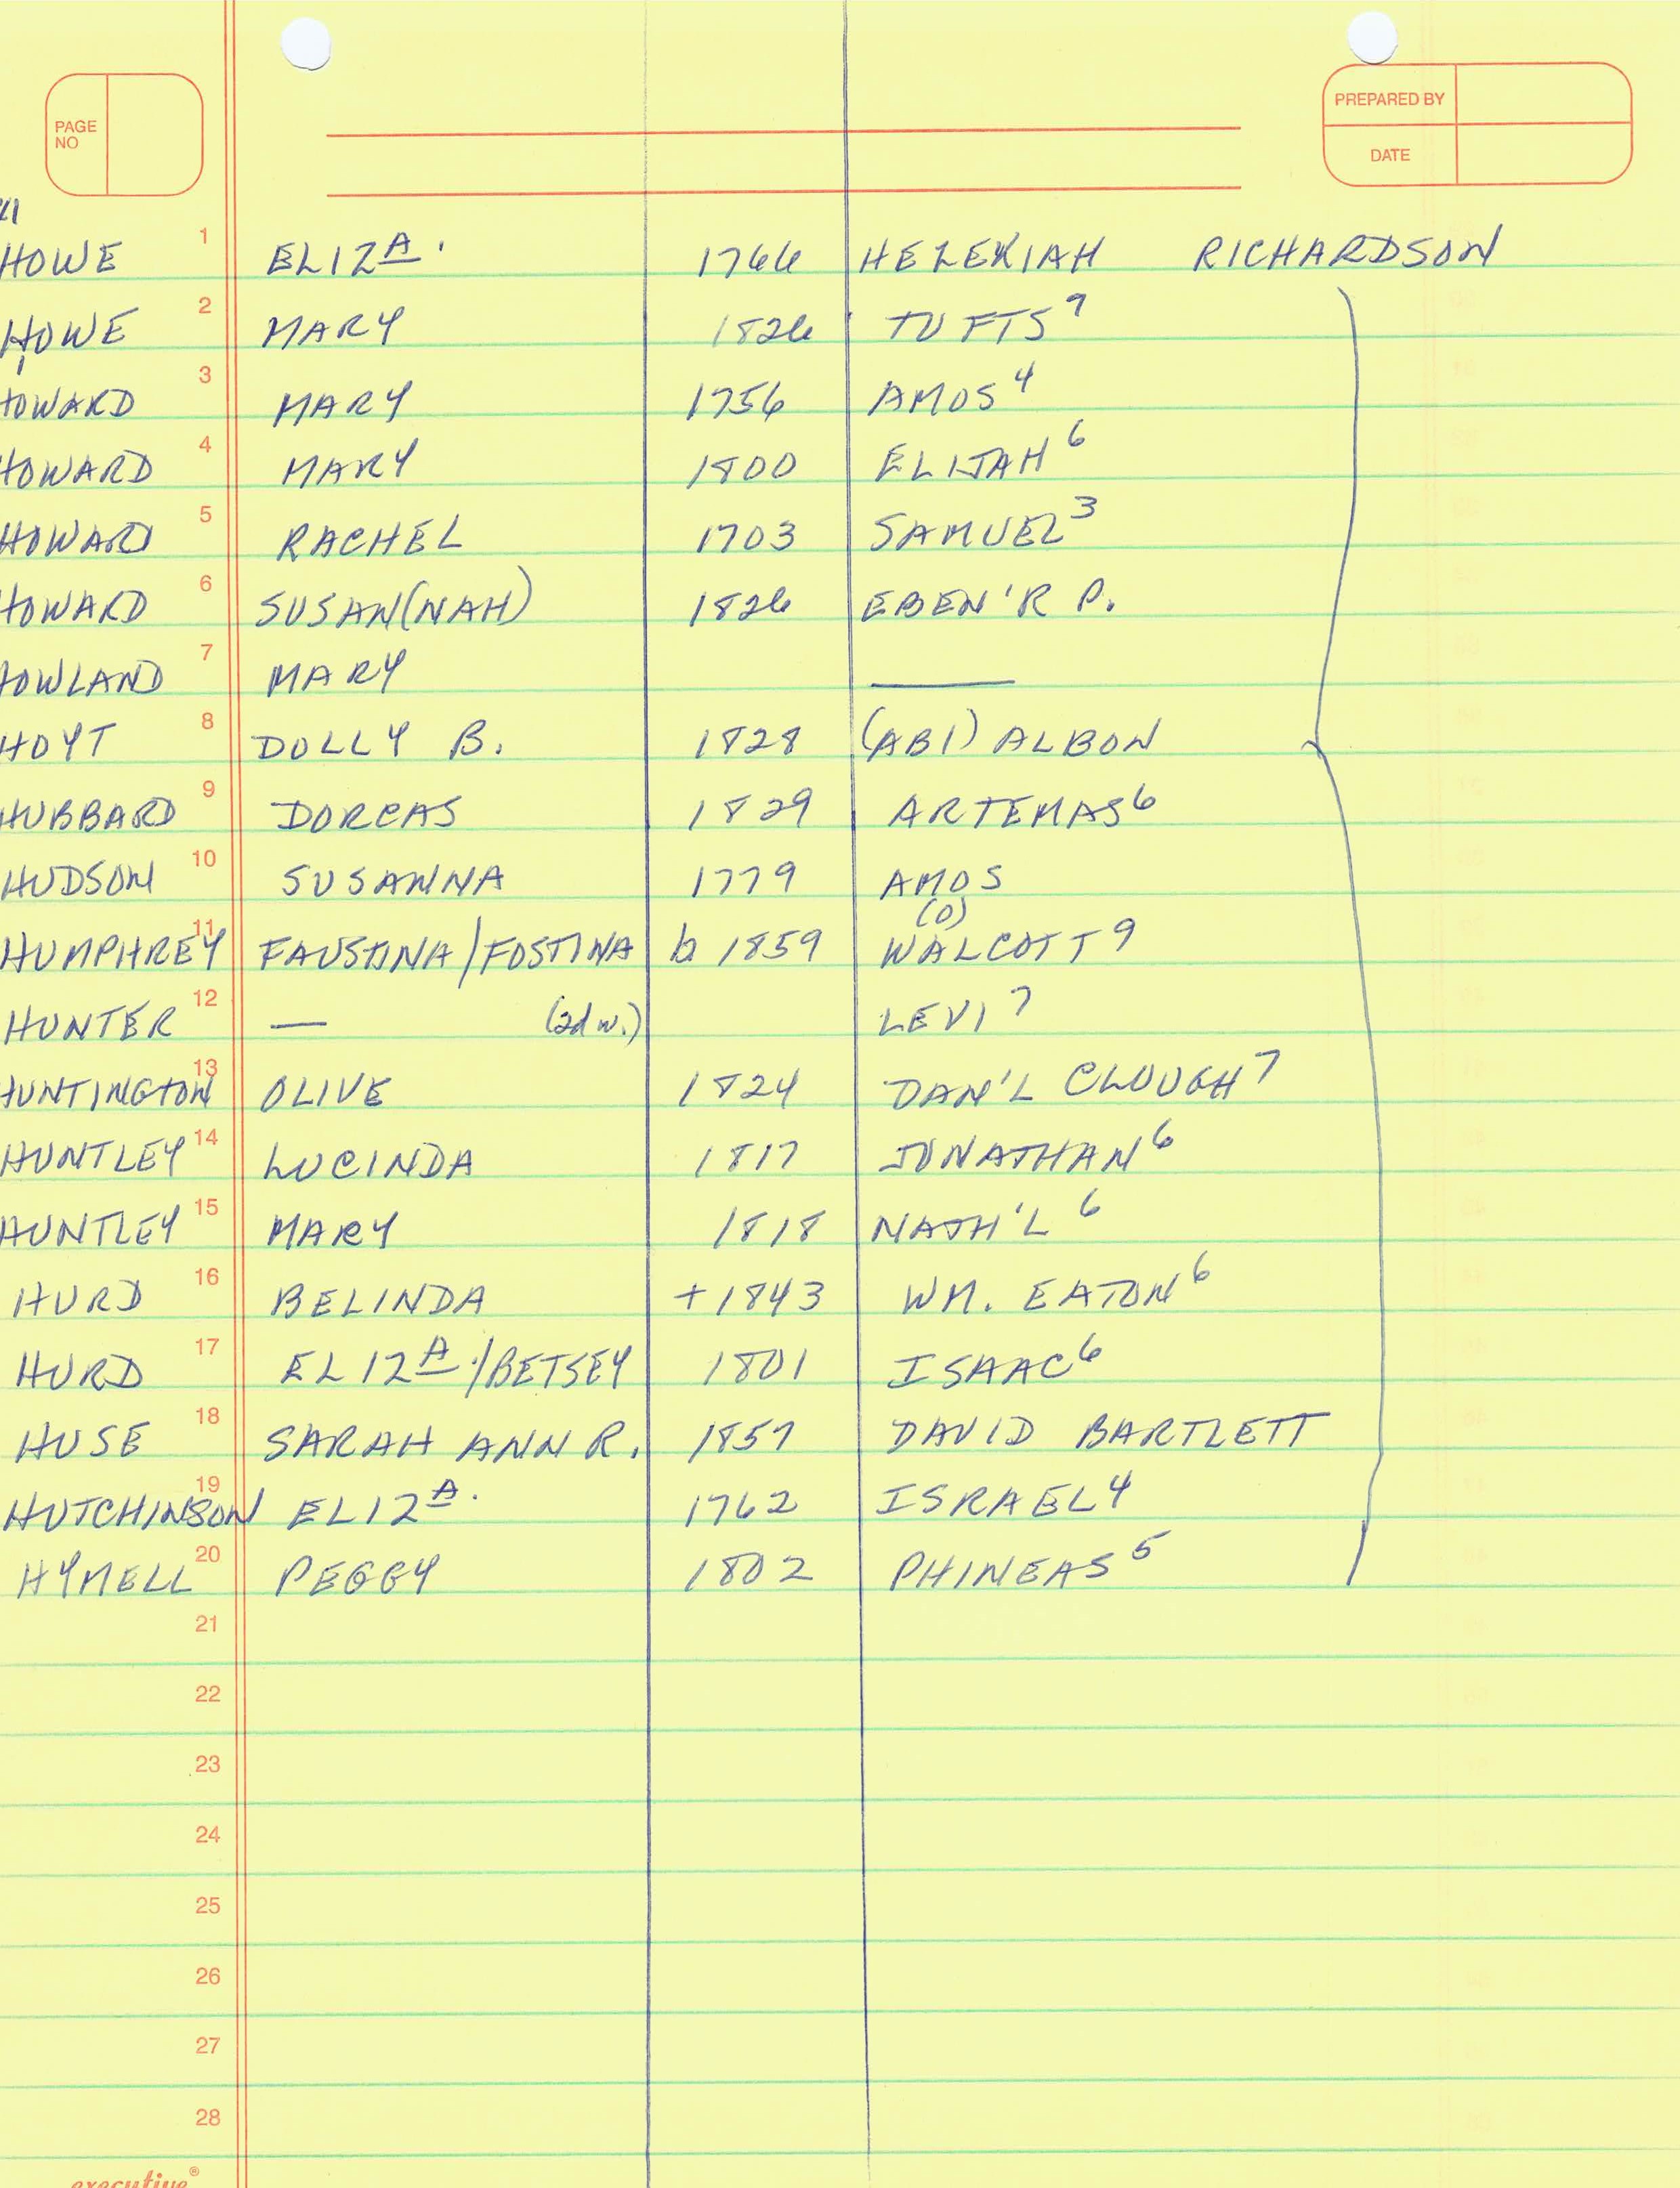 PAGE NO
PREPARED BY
DATE
1 HOWE ELIZA. 1766 HEZEKIAH RICHARDSON
2 HOWE MARY 1826 TUFTS 7
3 HOWARD MARY 1756 AMOS 4
4 HOWARD MARY 1800 ELIJAH 6
5 HOWARD RACHEL 1703 SAMUEL 3
6 HOWARD SUSAN(NAH) 1826 EBEN'R P.
7 HOWLAND MARY ——
8 HOYT DOLLY B. 1828 (ABI) ALBON
9 HUBBARD DORCAS 1829 ARTEMAS 6
10 HUDSON SUSANNA 1779 AMOS
(O)
11 HUMPHREY FAUSTINA/FOSTINA b 1859 WALCOTT 9
12 HUNTER — (2d w.) LEVI 7
13 HUNTINGTON OLIVE 1824 DAN'L CLOUGH 7
14 HUNTLEY LUCINDA 1817 JONATHAN 6
15 HUNTLEY MARY 1818 NATH'L 6
16 HURD BELINDA +1843 WM. EATON 6
17 HURD ELIZA./BETSEY 1801 ISAAC 6
18 HUSE SARAH ANN R. 1857 DAVID BARTLETT
19 HUTCHINSON ELIZA. 1762 ISRAEL 4
20 HYMELL PEGGY 1802 PHINEAS 5
21
22
23
24
25
26
27
28
executive®